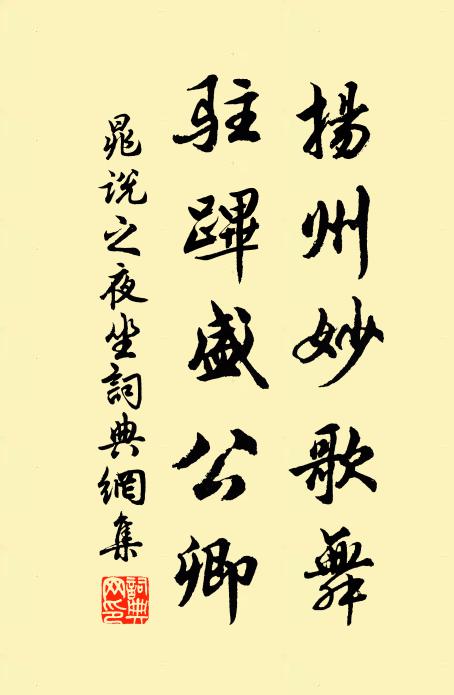 揚州妙歌舞
駐蹕盛公卿
晁説之夜坐詞典網集
詞典网印